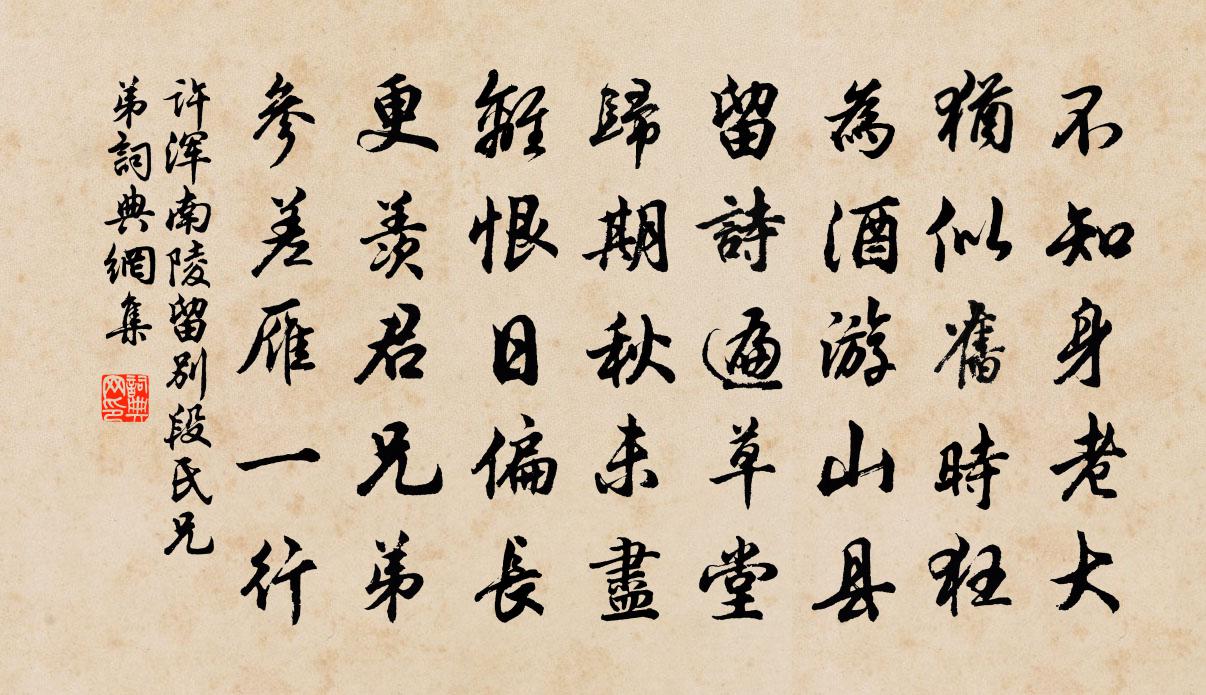 不知身老大
猶似舊時狂
為酒游山县
留詩遍草堂
歸期秋未盡
離恨日偏長
更羨君兄弟
參差雁一行
许浑南陵留別段氏兄
弟詞典網集
詞典
网印